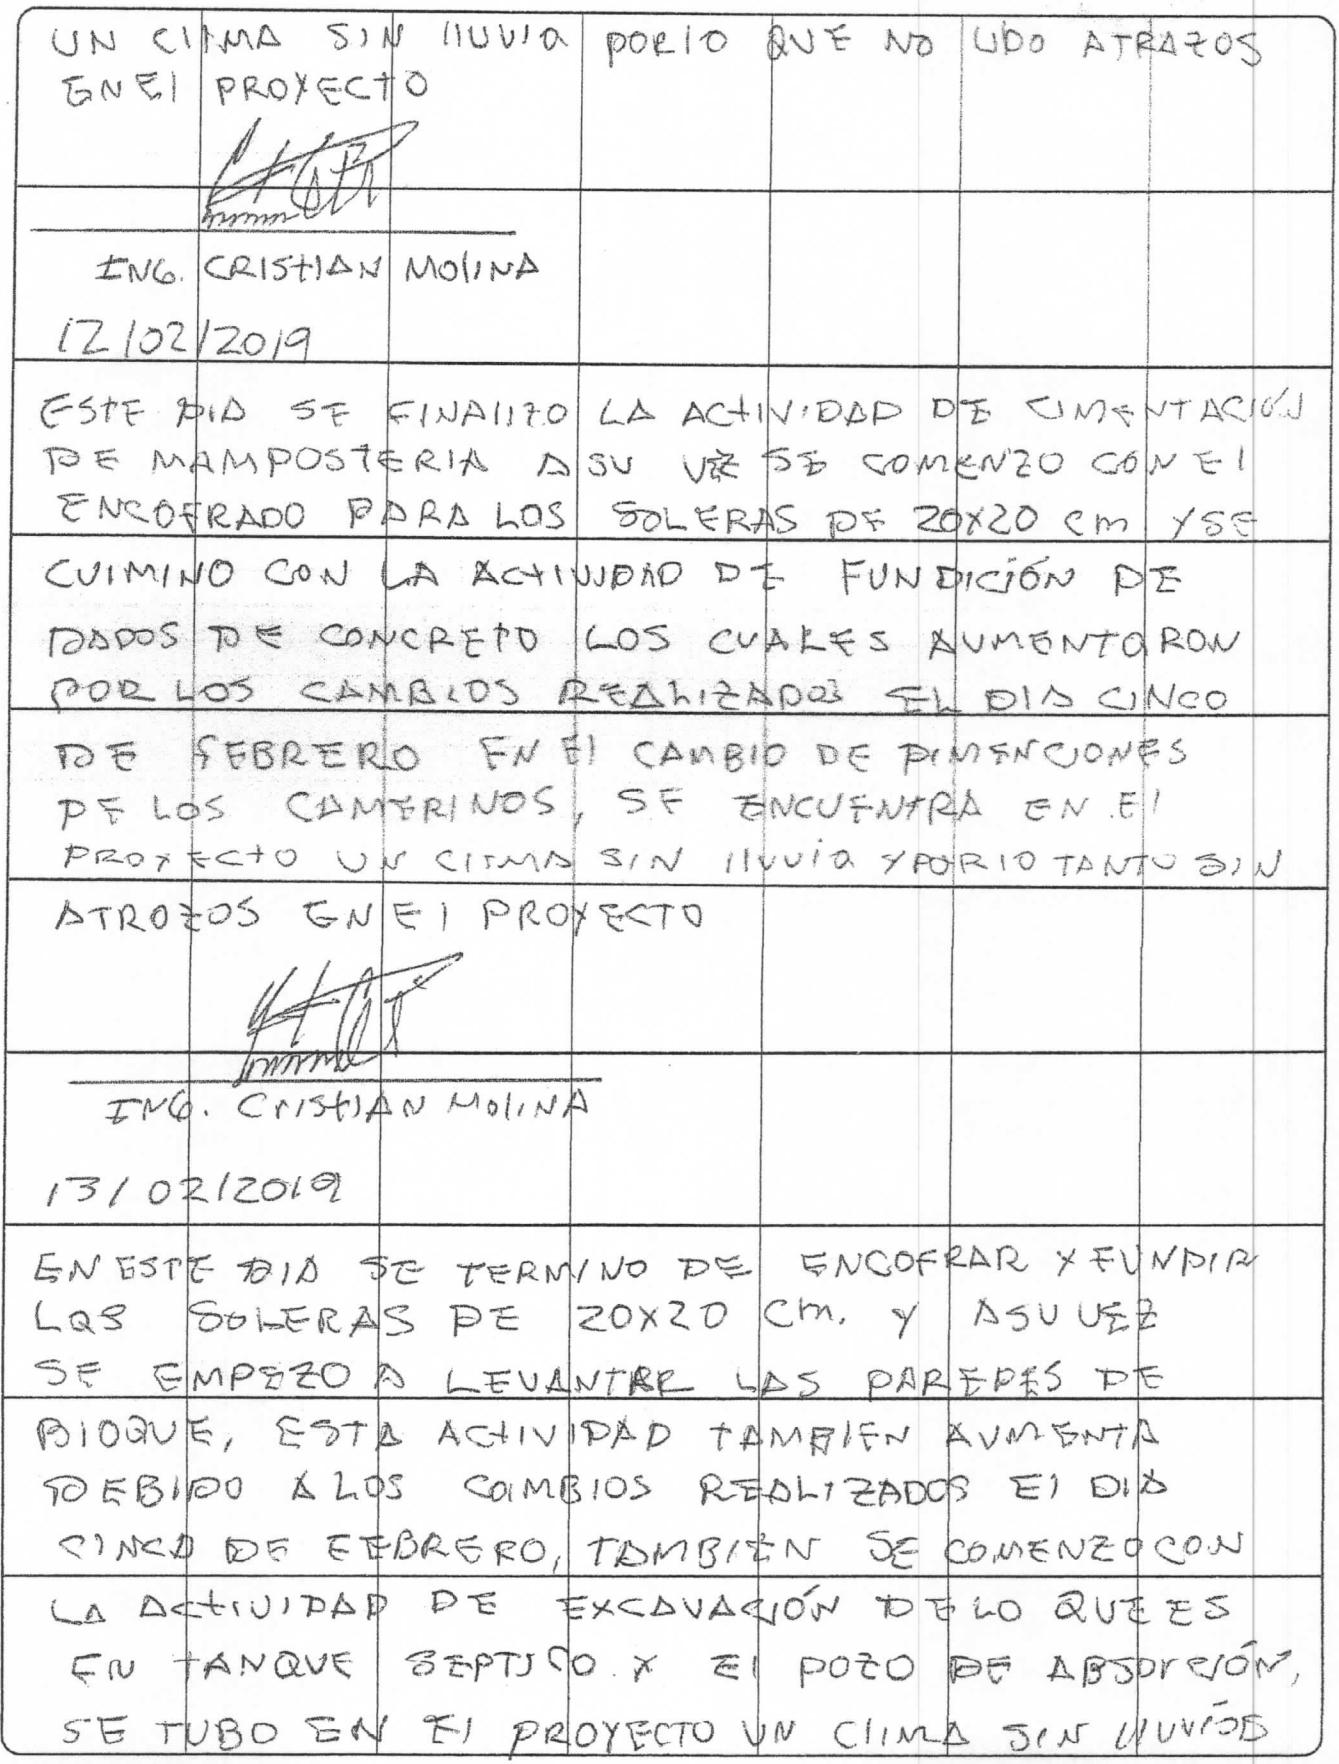 UN CLIMA SIN lluvia POR lO QUE NO UDO ATRAZOS
EN El PROYECTO
ING. CRISTIAN MOlINA
12/02/2019
ESTE DIA SE FINAlIZO LA ACTIVIDAD DE CIMENTACIÓN
DE MAMPOSTERIA A SU VEZ SE COMENZO CON El
ENCOFRADO PARA LOS SOLERAS DE 20X20 cm Y SE
CUlMINO CON LA ACTIVIDAD DE FUNDICIÓN DE
DADOS DE CONCRETO LOS CUALES AUMENTARON
POR LOS CAMBIOS REALIZADOS EL DIA CINCO
DE FEBRERO EN El CAMBIO DE DIMENCIONES
DE LOS CAMERINOS, SE ENCUENTRA EN El
PROYECTO UN CLIMA SIN lluvia Y POR lO TANTO SIN
ATRAZOS EN El PROYECTO
ING. CrISTIAN MOlINA
13/02/2019
EN ESTE DIA SE TERMINO DE ENCOFRAR Y FUNDIR
LaS SOLERAS DE 20X20 Cm. y A SU VEZ
SE EMPEZO A LEVANTAR LAS PAREDES DE
BlOQUE, ESTA ACTIVIDAD TAMBIEN AUMENTA
DEBIDO A LOS CAMBIOS REALIZADOS El DIA
CINCO DE FEBRERO, TAMBIEN SE COMENZO CON
LA ACTIVIDAD DE EXCAVACIÓN DE LO QUE ES
EN TANQUE SEPTICO Y El POZO DE ABSOrCIÓN,
SE TUBO EN El PROYECTO UN ClIMA SIN lluvIAS